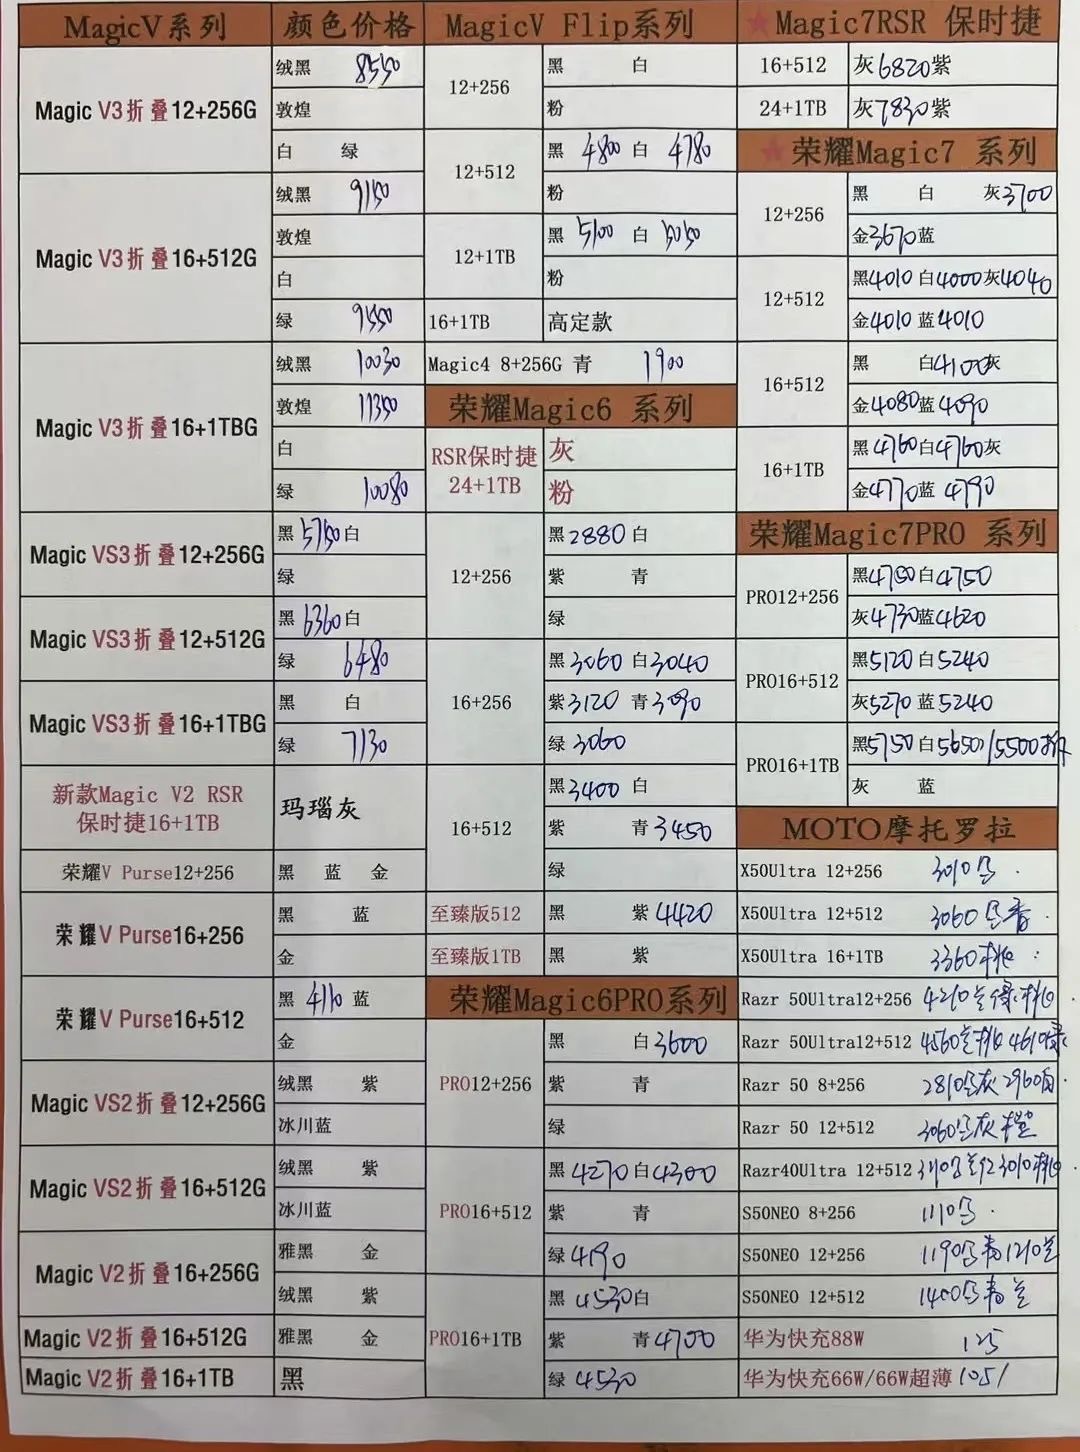 MagicV系列 颜色价格
Magic V3折叠12+256G
绒黑 8550
敦煌
白 绿
Magic V3折叠16+512G
绒黑 9150
敦煌
白
绿 9550
Magic V3折叠16+1TBG
绒黑 10030
敦煌 11350
白
绿 10080
Magic VS3折叠12+256G
黑 5750 白
绿
Magic VS3折叠12+512G
黑 6360 白
绿 6480
Magic VS3折叠16+1TBG
黑 白
绿 7130
新款Magic V2 RSR
保时捷16+1TB
玛瑙灰
荣耀V Purse12+256
黑 蓝 金
荣耀V Purse16+256
黑 蓝
金
荣耀V Purse16+512
黑 4110 蓝
金
Magic VS2折叠12+256G
绒黑 紫
冰川蓝
Magic VS2折叠16+512G
绒黑 紫
冰川蓝
Magic V2折叠16+256G
雅黑 金
绒黑 紫
Magic V2折叠16+512G
雅黑 金
Magic V2折叠16+1TB
黑
MagicV Flip系列
12+256
黑 白
粉
12+512
黑 4800 白 4780
粉
12+1TB
黑 5100 白 5050
粉
16+1TB 高定款
Magic4 8+256G 青 1900
荣耀Magic6 系列
RSR保时捷
24+1TB
灰
粉
12+256
黑2880 白
紫 青
绿
16+256
黑3060 白3040
紫3120 青3090
绿3060
16+512
黑3400 白
紫 青3450
绿
至臻版512 黑 紫4420
至臻版1TB 黑 紫
荣耀Magic6PRO系列
PRO12+256
黑 白3600
紫 青
绿
PRO16+512
黑4270白4300
紫 青
绿4190
PRO16+1TB
黑4530白
紫 青4700
绿4530
★Magic7RSR 保时捷
16+512 灰6820紫
24+1TB 灰7830紫
★荣耀Magic7 系列
12+256
黑 白 灰3700
金3670蓝
12+512
黑4010 白4000灰4040
金4010 蓝4010
16+512
黑 白4100灰
金4080蓝4090
16+1TB
黑4760白4760灰
金4770蓝4790
荣耀Magic7PRO 系列
PRO12+256
黑4750白4750
灰4730蓝4620
PRO16+512
黑5120白5240
灰5270蓝5240
PRO16+1TB
黑5750白5650/5500拆
灰 蓝
MOTO摩托罗拉
X50Ultra 12+256 3010
X50Ultra 12+512 3060
X50Ultra 16+1TB 3360桃
Razr 50Ultra12+256 4210兰绿桃
Razr 50Ultra12+512 4560兰桃 4610绿
Razr 50 8+256 2810灰 2960白
Razr 50 12+512 3060灰橙
Razr40Ultra 12+512 3010桃
S50NEO 8+256 1110
S50NEO 12+256 1190 1210兰
S50NEO 12+512 1400兰
华为快充88W 125
华为快充66W/66W超薄 105/